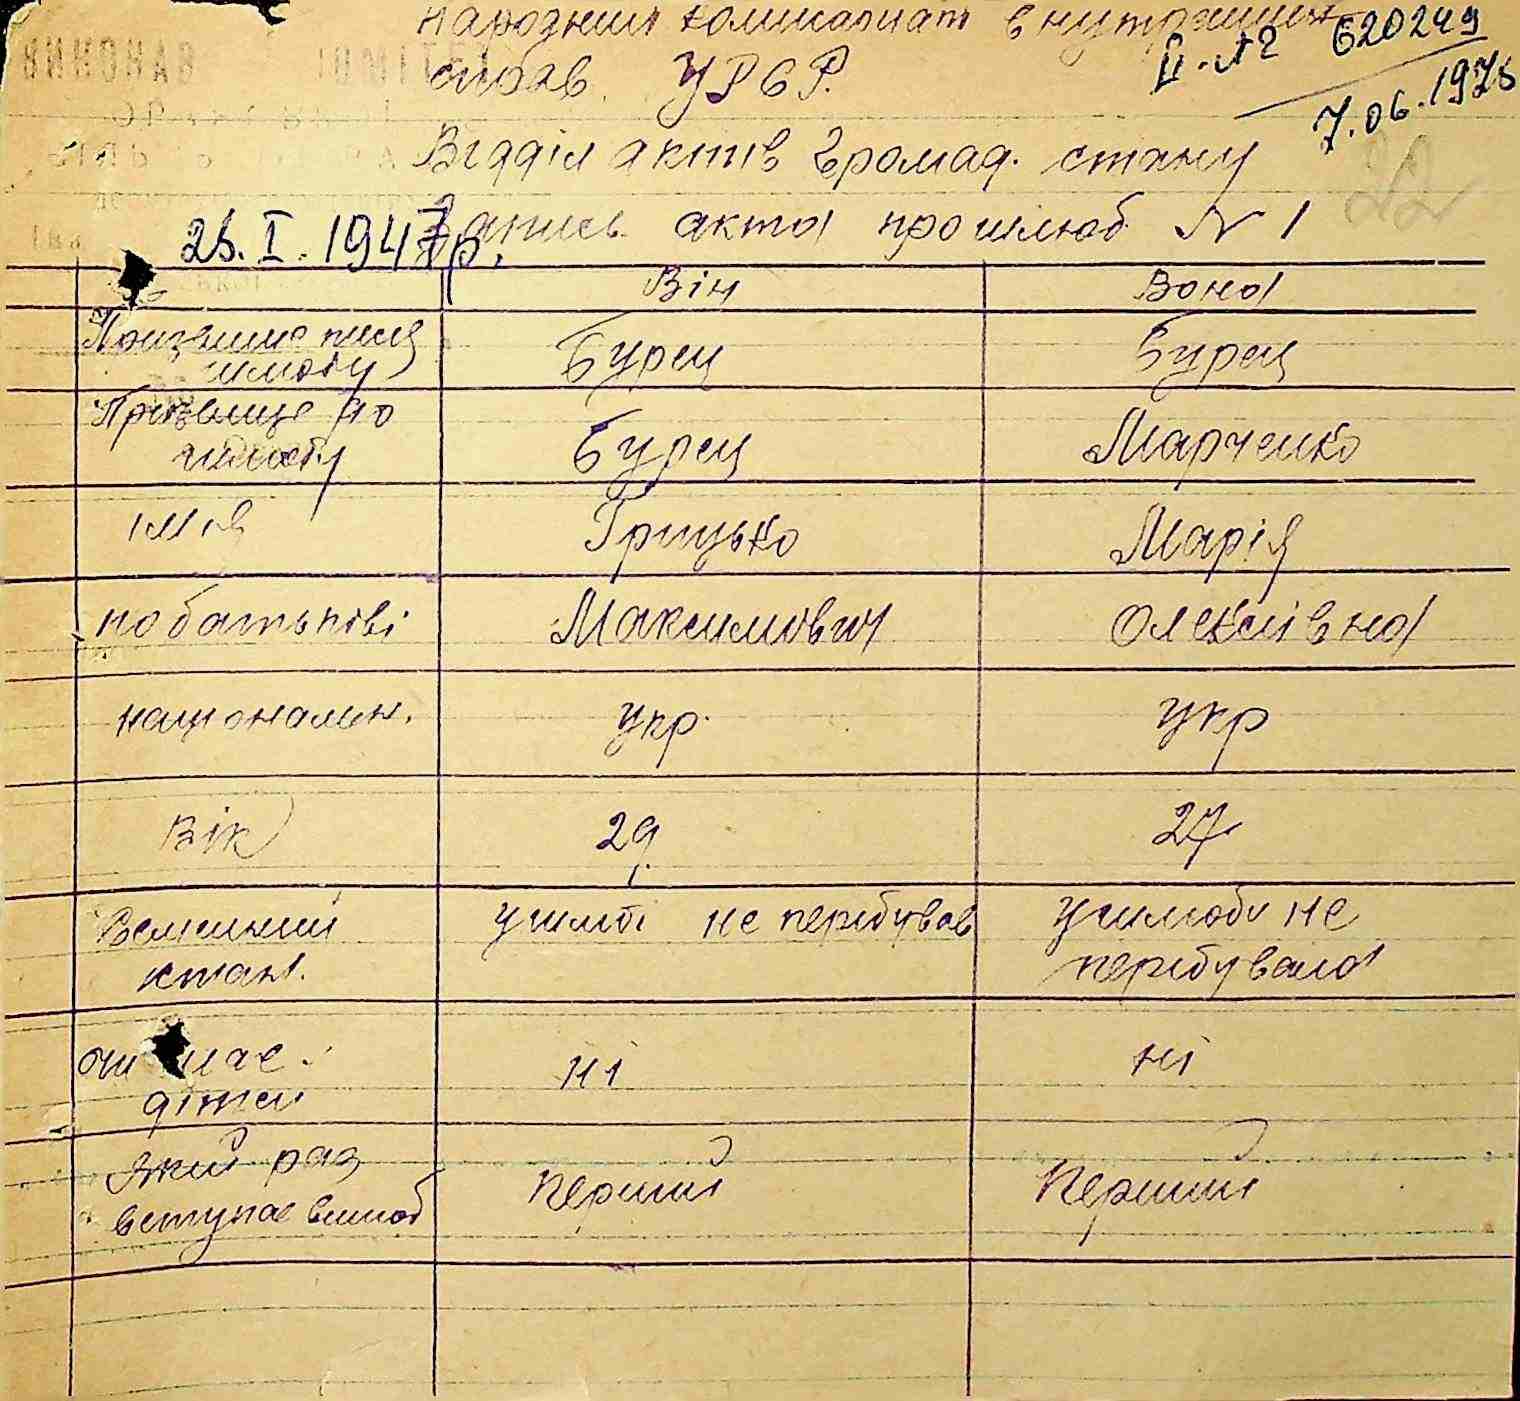 Народний комісаріат внутрішніх
справ УРСР.
ІІ-А2 620249
7.06.1975
Відділ актів громад. стану
22
Запись акта про шлюб № 1
25. I. 1947р.
Він Вона
Прізвище після шлюбу Бурец Бурец
Прізвище до шлюбу Бурец Марченко
імя Грицько Марія
по батькові Максимович Олексіївна
національн. укр. укр
Вік 29 27
стан. у шлюбі не перебував у шлюбі не
перебувала
чи має ні ні
дітей
Який раз Перший Перший
вступає в шлюб